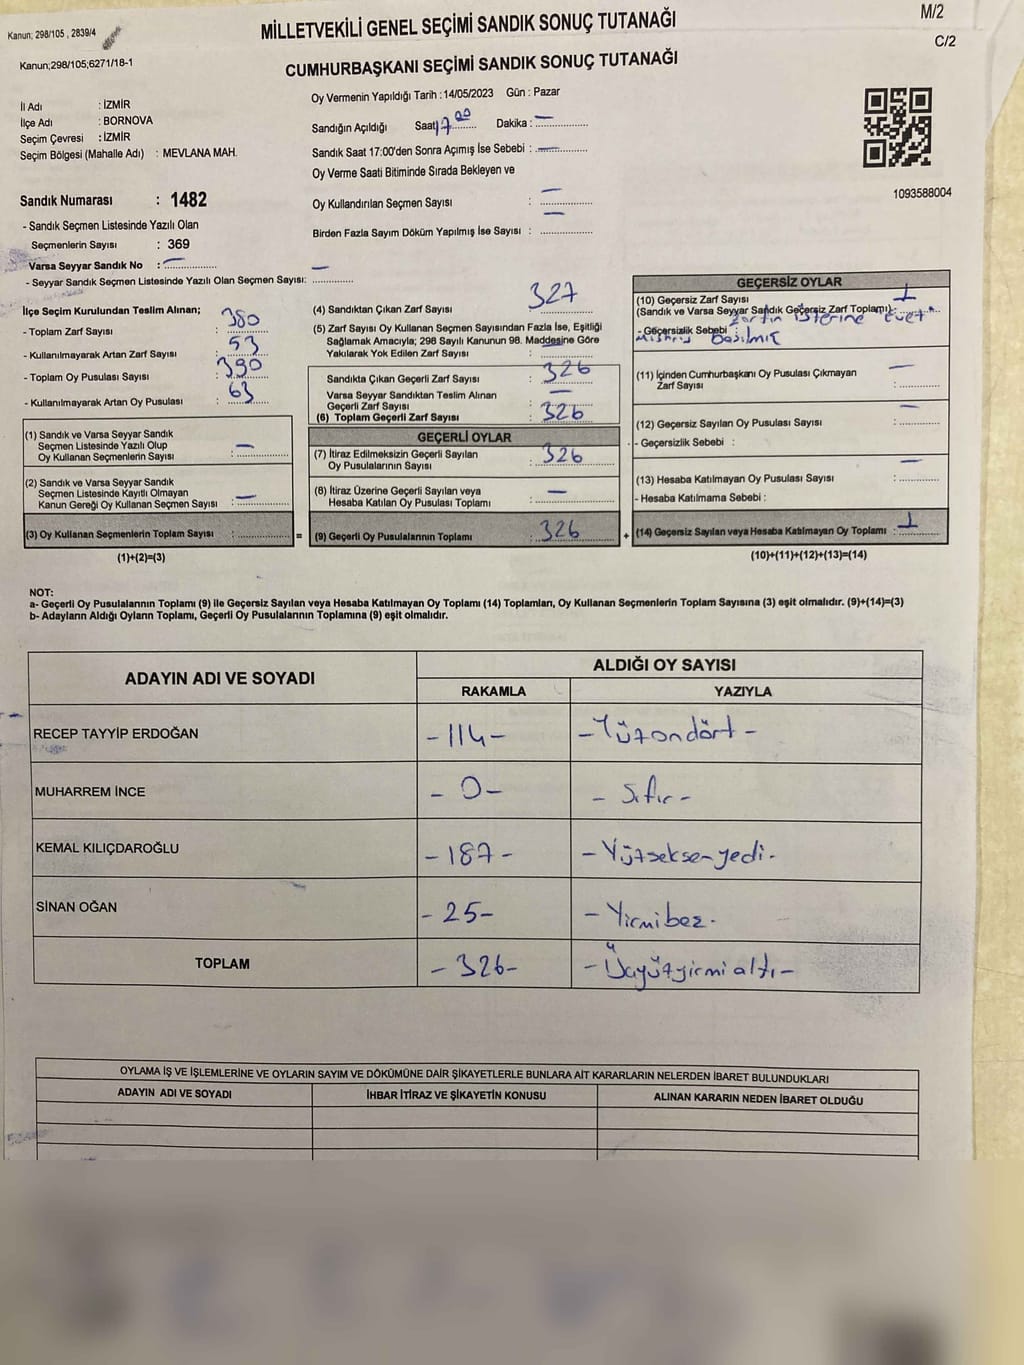 Kanun; 298/105 , 2839/4
Kanun;298/105;6271/18-1
MİLLETVEKİLİ GENEL SEÇİMİ SANDIK SONUÇ TUTANAĞI
CUMHURBAŞKANI SEÇİMİ SANDIK SONUÇ TUTANAĞI
M/2
C/2
İl Adı : İZMİR
İlçe Adı : BORNOVA
Seçim Çevresi : İZMİR
Seçim Bölgesi (Mahalle Adı) : MEVLANA MAH.
Oy Vermenin Yapıldığı Tarih :14/05/2023 Gün : Pazar
Sandığın Açıldığı Saat 17.00 Dakika : —
Sandık Saat 17:00'den Sonra Açımış İse Sebebi : —
Oy Verme Saati Bitiminde Sırada Bekleyen ve
Oy Kullandırılan Seçmen Sayısı : —
Birden Fazla Sayım Döküm Yapılmış İse Sayısı : —
1093588004
Sandık Numarası : 1482
- Sandık Seçmen Listesinde Yazılı Olan
Seçmenlerin Sayısı : 369
Varsa Seyyar Sandık No : —
- Seyyar Sandık Seçmen Listesinde Yazılı Olan Seçmen Sayısı: —
İlçe Seçim Kurulundan Teslim Alınan;
- Toplam Zarf Sayısı : 380
- Kullanılmayarak Artan Zarf Sayısı : 53
- Toplam Oy Pusulası Sayısı : 390
- Kullanılmayarak Artan Oy Pusulası : 63
(1) Sandık ve Varsa Seyyar Sandık
Seçmen Listesinde Yazılı Olup
Oy Kullanan Seçmenlerin Sayısı : —
(2) Sandık ve Varsa Seyyar Sandık
Seçmen Listesinde Kayıtlı Olmayan
Kanun Gereği Oy Kullanan Seçmen Sayısı : —
(3) Oy Kullanan Seçmenlerin Toplam Sayısı :
(1)+(2)=(3)
=
(4) Sandıktan Çıkan Zarf Sayısı : 327
(5) Zarf Sayısı Oy Kullanan Seçmen Sayısından Fazla İse, Eşitliği
Sağlamak Amacıyla; 298 Sayılı Kanunun 98. Maddesine Göre
Yakılarak Yok Edilen Zarf Sayısı : —
Sandıkta Çıkan Geçerli Zarf Sayısı : 326
Varsa Seyyar Sandıktan Teslim Alınan
Geçerli Zarf Sayısı : —
(6) Toplam Geçerli Zarf Sayısı : 326
GEÇERLİ OYLAR
(7) İtiraz Edilmeksizin Geçerli Sayılan
Oy Pusulalarının Sayısı : 326
(8) İtiraz Üzerine Geçerli Sayılan veya
Hesaba Katılan Oy Pusulası Toplamı : —
(9) Geçerli Oy Pusulalarının Toplamı : 326
+
GEÇERSİZ OYLAR
(10) Geçersiz Zarf Sayısı
(Sandık ve Varsa Seyyar Sandık Geçersiz Zarf Toplamı) : 1
- Geçersizlik Sebebi : zarfın üsterine Evet"
mührü basılmış
(11) İçinden Cumhurbaşkanı Oy Pusulası Çıkmayan
Zarf Sayısı : —
(12) Geçersiz Sayılan Oy Pusulası Sayısı : —
- Geçersizlik Sebebi :
(13) Hesaba Katılmayan Oy Pusulası Sayısı : —
- Hesaba Katılmama Sebebi :
(14) Geçersiz Sayılan veya Hesaba Katılmayan Oy Toplamı : 1
(10)+(11)+(12)+(13)=(14)
NOT:
a- Geçerli Oy Pusulalarının Toplamı (9) ile Geçersiz Sayılan veya Hesaba Katılmayan Oy Toplamı (14) Toplamları, Oy Kullanan Seçmenlerin Toplam Sayısına (3) eşit olmalıdır. (9)+(14)=(3)
b- Adayların Aldığı Oyların Toplamı, Geçerli Oy Pusulalarının Toplamına (9) eşit olmalıdır.
ADAYIN ADI VE SOYADI
ALDIĞI OY SAYISI
RAKAMLA YAZIYLA
RECEP TAYYİP ERDOĞAN -114- -Yüzondört-
MUHARREM İNCE -0- -Sıfır-
KEMAL KILIÇDAROĞLU -187- -Yüzseksenyedi-
SİNAN OĞAN -25- -Yirmibeş-
TOPLAM -326- -Üçyüzyirmialtı-
OYLAMA İŞ VE İŞLEMLERİNE VE OYLARIN SAYIM VE DÖKÜMÜNE DAİR ŞİKAYETLERLE BUNLARA AİT KARARLARIN NELERDEN İBARET BULUNDUKLARI
ADAYIN ADI VE SOYADI İHBAR İTİRAZ VE ŞİKAYETİN KONUSU ALINAN KARARIN NEDEN İBARET OLDUĞU